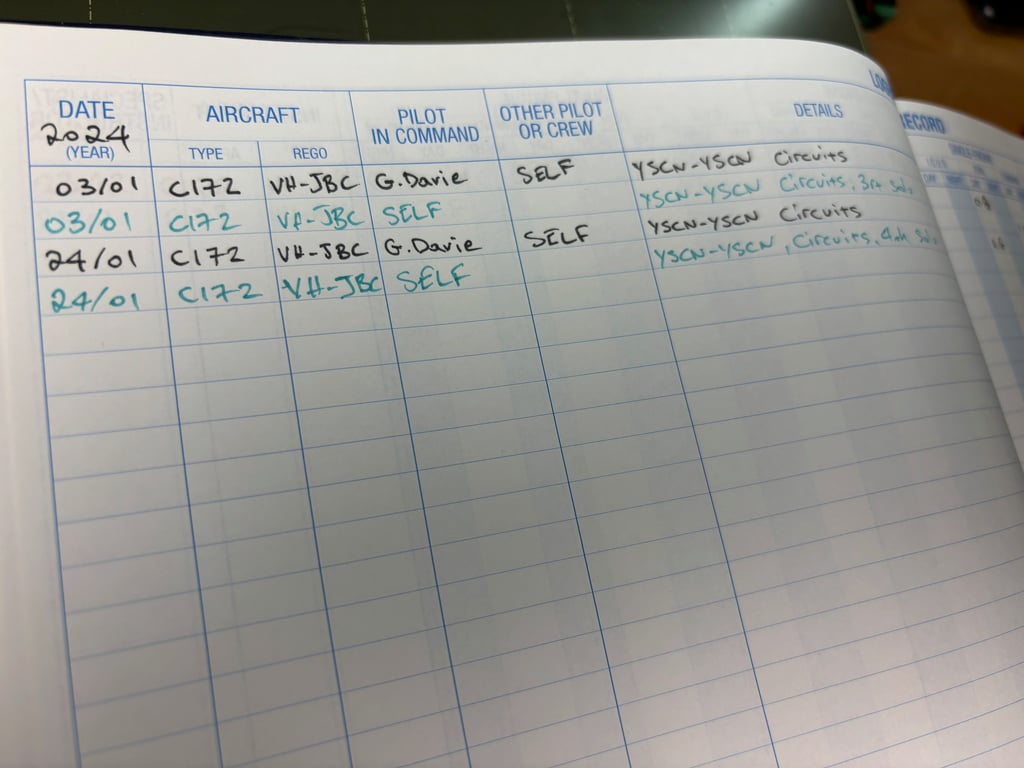 DATE
2024
(YEAR)
AIRCRAFT
TYPE
REGO
PILOT
IN COMMAND
OTHER PILOT
OR CREW
DETAILS
RECORD
03/01 C172 VH-JBC G. Davie SELF YSCN-YSCN Circuits
03/01 C172 VH-JBC SELF YSCN-YSCN Circuits, 3rd
24/01 C172 VH-JBC G. Davie SELF YSCN-YSCN Circuits
24/01 C172 VH-JBC SELF YSCN-YSCN, Circuits, 4th